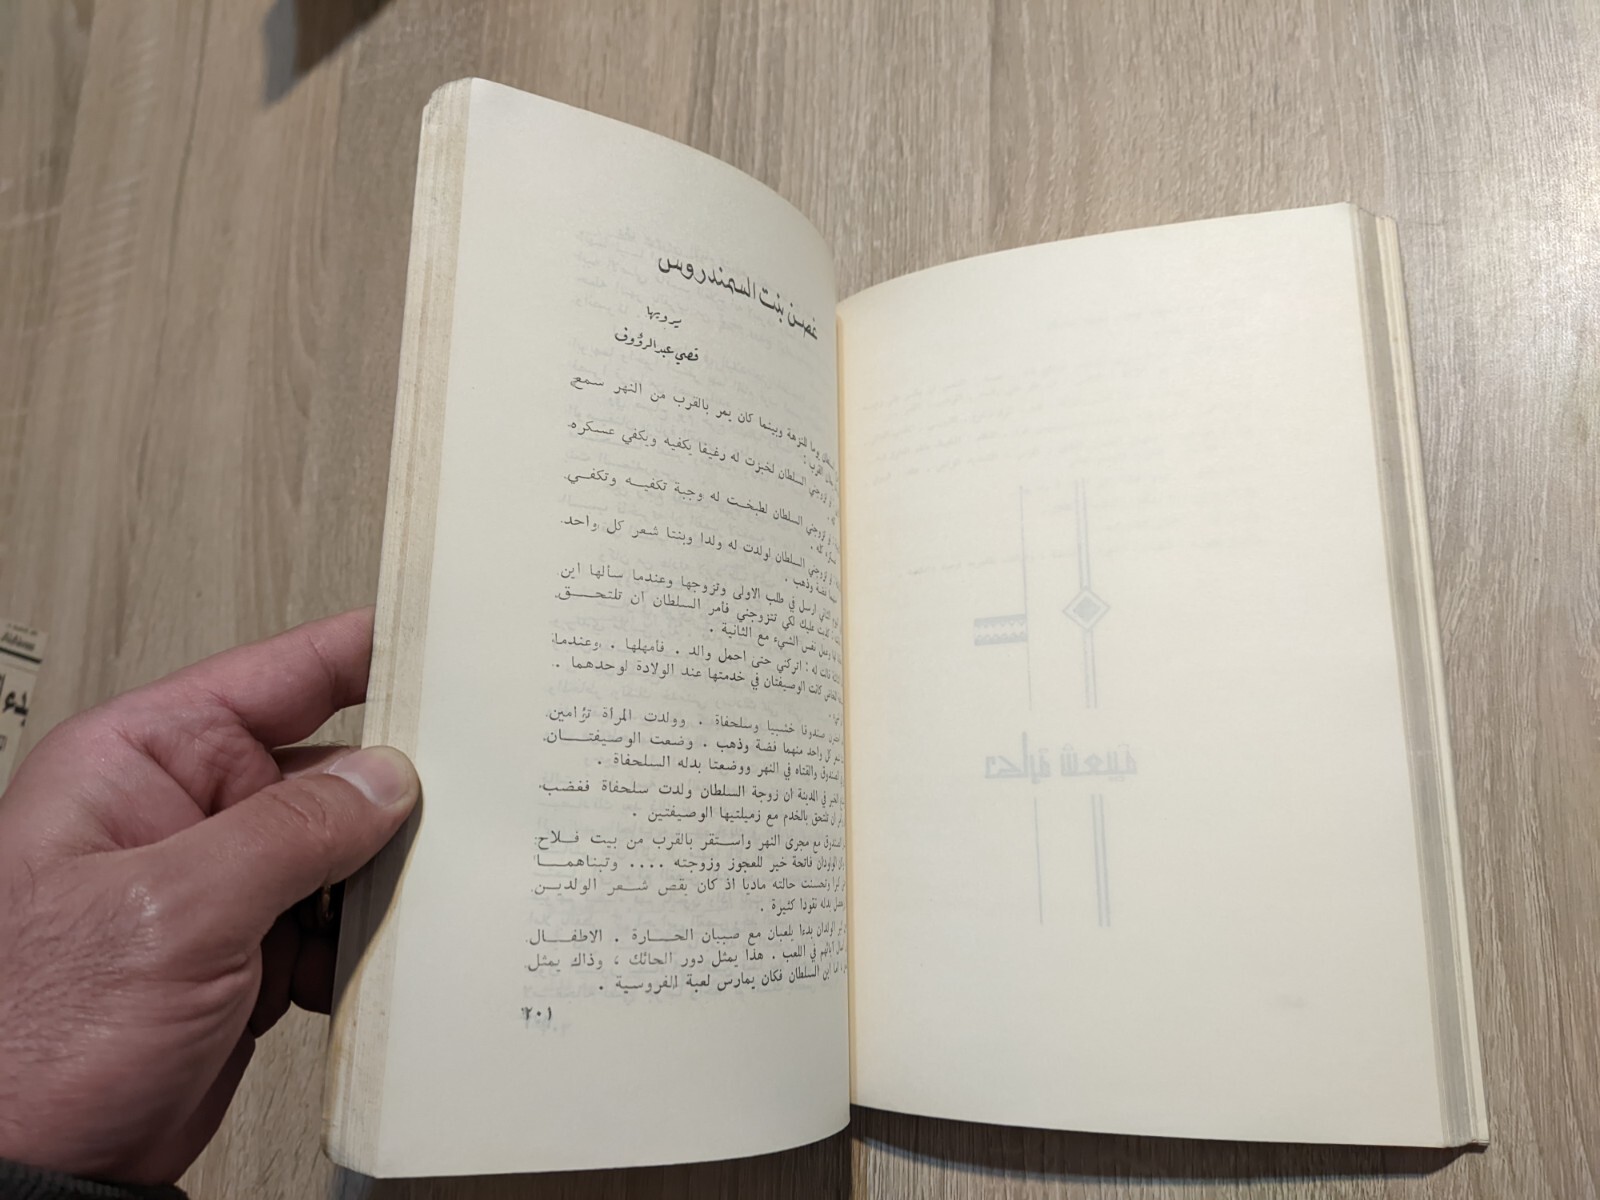 غصن بنت السمندروس
يرويها
قصي عبدالرؤوف
للنزهة وبينما كان يمر بالقرب من النهر سمع
تزوجني السلطان لخبزت له رغيفا يكفيه ويكفي عسكره.
تزوجني السلطان لطبخت له وجبة تكفيه وتكفي
تزوجني السلطان لولدت له ولدا وبنتا شعر كل واحد
فضة وذهب .
الثاني ارسل في طلب الاولى وتزوجها وعندما سألها اين
عليك لكي تتزوجني فامر السلطان ان تلتحق
نفس الشيء مع الثانية .
قالت له : اتركني حتى احمل والد . فامهلها . وعندما
كانت الوصيفتان في خدمتها عند الولادة لوحدهما .
صندوقا خشبيا وسلحفاة . وولدت المرأة تؤامين
كل واحد منهما فضة وذهب . وضعت الوصيفتان
والقتاه في النهر ووضعتا بدله السلحفاة .
الخبر في المدينة ان زوجة السلطان ولدت سلحفاة فغضب
ان تلتحق بالخدم مع زميلتيها الوصيفتين .
مع مجرى النهر واستقر بالقرب من بيت فلاح
الولودان فاتحة خير للعجوز وزوجته .... وتبناهما
وتحسنت حالته ماديا اذ كان يقص شعر الولدين
بدله نقودا كثيرة .
الولدان بدءا يلعبان مع صبيان الحارة . الاطفال
ابائهم في اللعب . هذا يمثل دور الحائك ، وذاك يمثل
اما ابن السلطان فكان يمارس لعبة الفروسية .
٢٠١